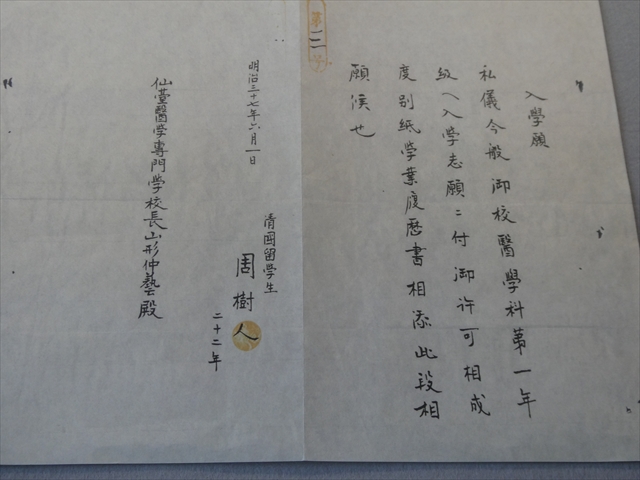 入学願
私儀今般御校醫学科第一年
級へ入学志願ニ付御許可相成
度別紙学業履歴書相添此段相
願候也
明治三十七年六月一日
清国留学生
周樹人
二十二年
仙臺醫学専門学校長山形仲藝殿